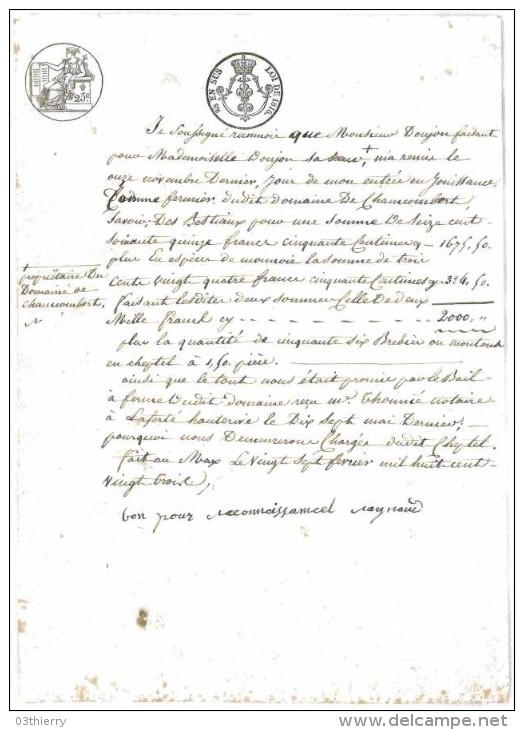 25c
25 EN SUS LOI DE 1816.
Je soussigné reconnois que Monsieur Doujon faisant
pour Mademoiselle Doujon sa sœur + m'a remis le
onze novembre Dernier, Jour de mon entrée en Jouissance,
Comme fermier dudit domaine De Chaucombert,
Savoir; Des Bestiaux pour une Somme De Seize cent
soixante quinze francs cinquante Centimes cy - 1675. 50.
plus En espèces de monnoie la somme de trois
Cents vingt quatre francs cinquante Centimes cy 324. 50.
faisant lesdites deux sommes Celle De deux
Mille francs cy - - - - - - - - - - 2000, "
plus la quantité de cinquante six Brebis ou moutons
en cheptel à 1,50. pièce.
ainsi que le tout nous était promis par le Bail
à ferme dudit domaine reçu me Thonnié notaire
à Laferté hauterive le Dix Sept mai Dernier;
pourquoi nous Demeurons Chargés dudit Cheptel.
fait au Max Le vingt Sept fevrier mil huit cent
vingt trois;
+ propriétaire Du
Domaine de
Chaucombert,
bon pour Raynaud
03thierry
delcampe.net